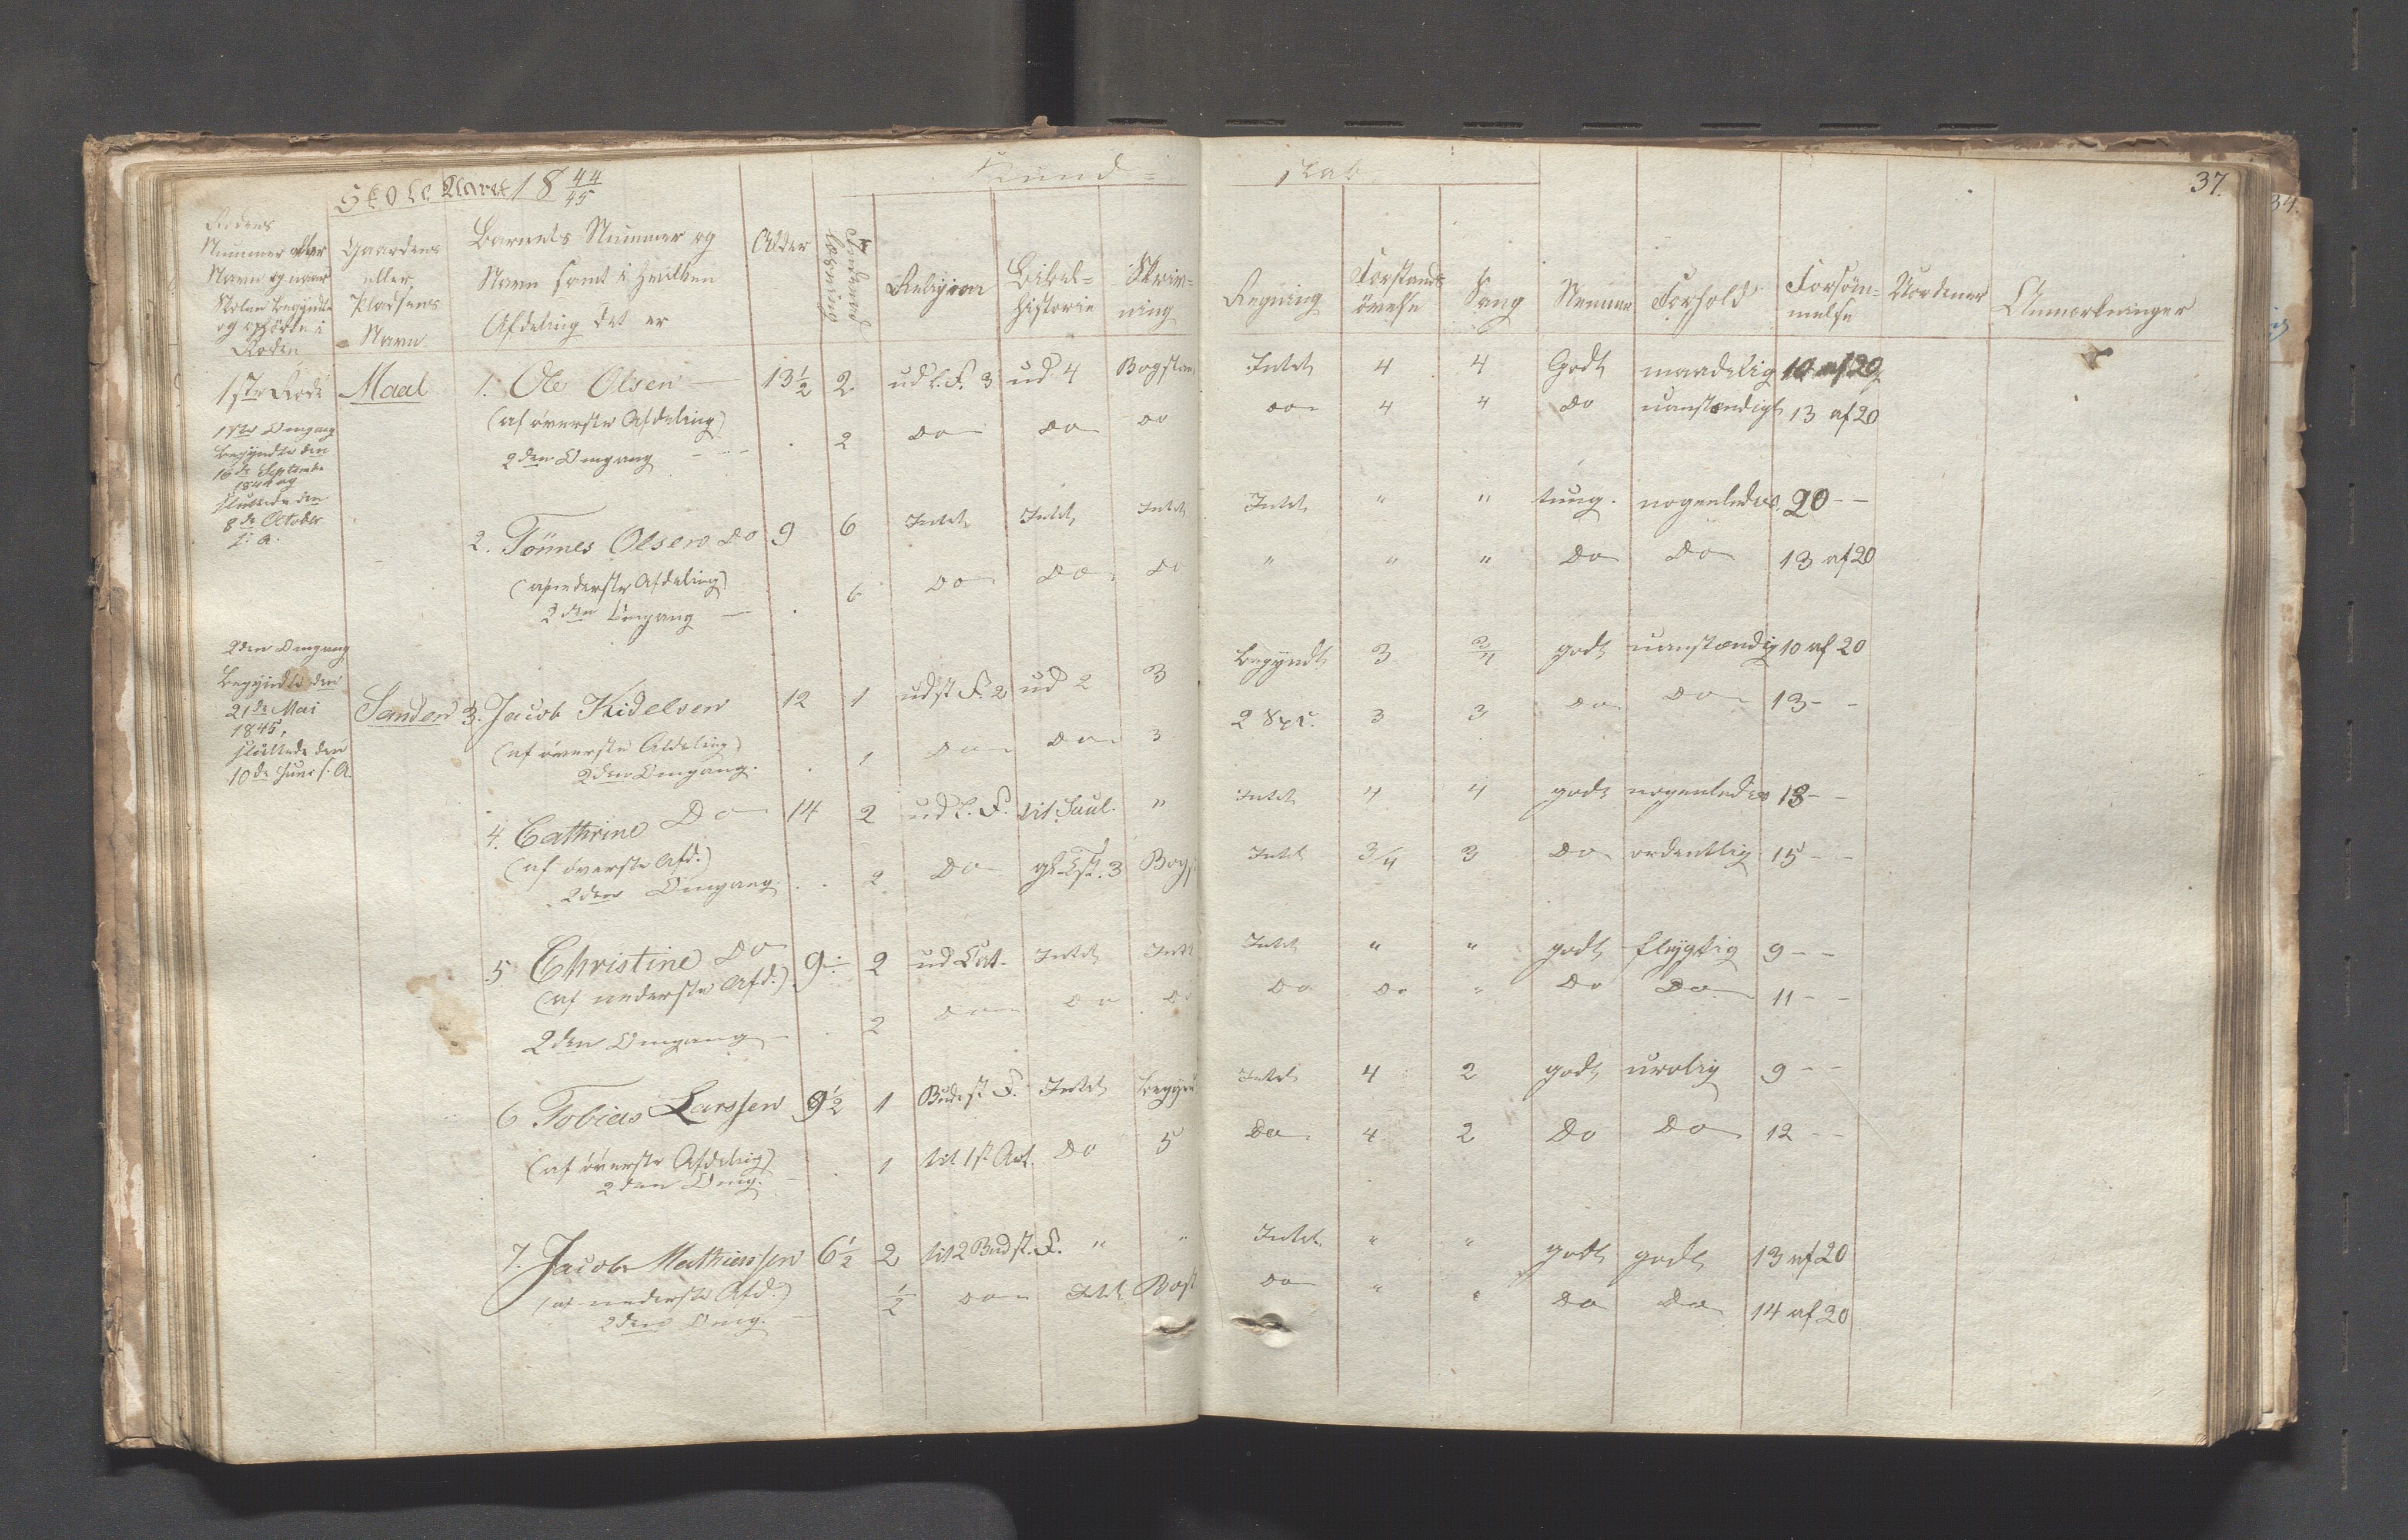 Skole Aaret 18 44/45
Kund=
skab
37.
34.
Rodens Nummer eller Navn og naar Skolen begyndte og ophørte i Roden
Gaardens eller Pladsens Navn
Barnets Nummer og Navn samt i hvilken Afdeling det er
Alder
Indenad læsning
Religion
Bibel= historie
Skriv= ning
Regning
Forstands øvelse
Sang
Nemme
Forhold
Forsøm= melse
Uordener
Anmærkninger
1ste Rode Maal 1. Ole Olsen — 13½ 2. ud l. F. 3 ud 4 Bogstav. Intet 4 4 Godt maadelig 10 af 20
(af øverste Afdeling)
2den Omgang - - - 2 Do Do Do Do 4 4 Do uanstændigt 13 af 20
1ste Omgang
begyndte den
16de Septembr
1844 og
sluttede den
8de Octobr
s. A.
2. Tønnes Olsen Do 9 6 Intet Intet Intet Intet " " tung. nogenledes 20 - -
(af nederste Afdeling)
2den Omgang — 6 Do Do Do " " " Do Do 13 af 20
2den Omgang
begyndte den
21de Mai
1845,
sluttede den
10de Juni s. A.
Sanden 3. Jacob Kidelsen 12 1 udst F. 2 ud 2 3 begyndt 3 3/4 godt uanstændig 10 af 20
(af øverste Afdeling)
2den Omgang. 1 Do Do 3 2 Spe. 3 3 Do Do 13 - -
4. Cathrine Do 14 2 ud l. F. til Saul. " Intet 4 4 godt nogenledes 18 - -
(af øverste Afd.)
2den Omgang. 2 Do gl. Tst. 3 Bogs. Intet 3/4 3 Do ordentlig 15 - -
5 Christine Do 9 2 ud Cat. Intet Intet Intet " " godt flygtig 9 - -
(af nederste Afd.)
2den Omgang - 2 Do Do Do Do Do " Do Do 11 - -
6 Tobias Larssen 9½ 1 Budest F. Intet begynd Intet 4 2 godt urolig 9 - -
(af øverste Afdelig)
2den Omg. - 1 til 1st Art. Do 5 Do 4 2 Do Do 12 - -
7. Jacob Mathiassen 6½ 2 til 2 Bud st. F. " " Intet " " godt godt 13 af 20
(af nederste Afd.)
2den Omg. - ½ Do Intet Bost Do " " Do Do 14 af 20